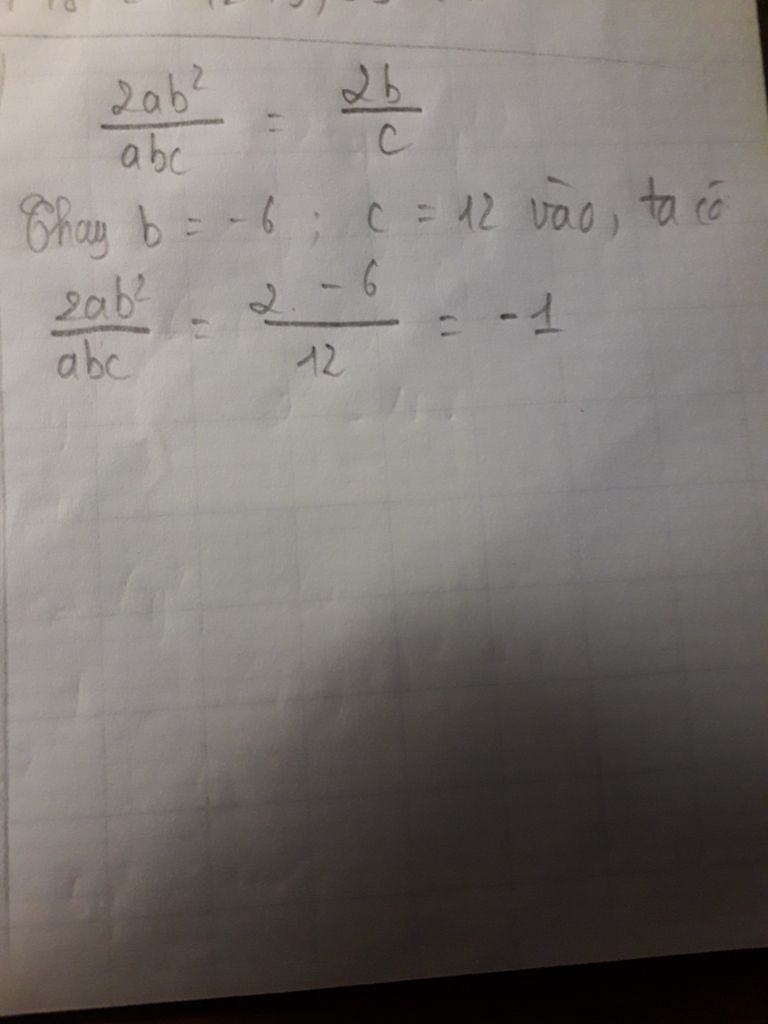 2ab² / abc = 2b / c
Thay b = -6 ; c = 12 vào, ta có
2ab² / abc = 2. -6 / 12 = -1